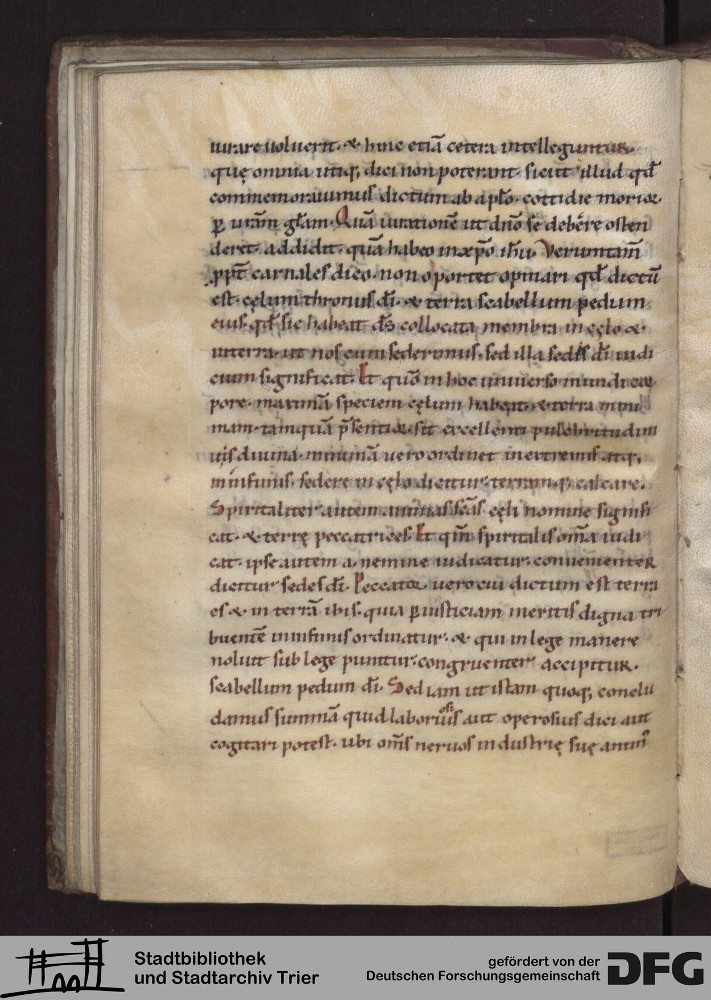 iurare uoluerit· & hinc etiā cetera intelleguntur·
quę omnia utiq; dici non poterant· sicut illud qđ
commemorauimus dictum ab apƚo· cottidie morior
ꝑ urām gƚam· Quā iurationē ut dn̄o se debere osten
deret· addidit· quā habeo in xp̄o ihū· Veruntam̄
ꝓpt̄ carnales dico· non oportet opinari qđ dictū
est· cęlum thronus dī· & terra scabellum pedum
eius· qđ sic habeat ds̄ collocata membra in cęlo &
in terra· ut nos cum sederimus· sed illa sedes dī iudi
cium significat· Et quō in hoc uniuerso mundi cor
pore· maximā speciem cęlum habeat· & terra mini
mam· tamquā p̄sentior sit excellenti pulchritudini
uis diuina· minimā uero ordinet in extremis· atq;
in infimis· sedere in cęlo dicitur· terramq; calcare·
Spiritaliter autem animas scās cęli nomine signifi
cat· & terrę peccatrices· Et qm̄ spiritalis om̄a iudi
cat· ipse autem a nemine iudicatur· conuenienter
dicitur sedes dī· Peccator uero cui dictum est terra
es & in terrā ibis· quia ꝑ iusticiam meritis digna tri
buentē in infimis ordinatur· & qui in lege manere
noluit sub lege punitur· congruenter accipitur·
scabellum pedum dī· Sed iam ut istam quoq; conclu
damus summā quid laboriosius aut operosius dici aut
cogitari potest· ubi om̄s neruos industrię suę anim̄
Stadtbibliothek
und Stadtarchiv Trier
gefördert von der
Deutschen Forschungsgemeinschaft
DFG